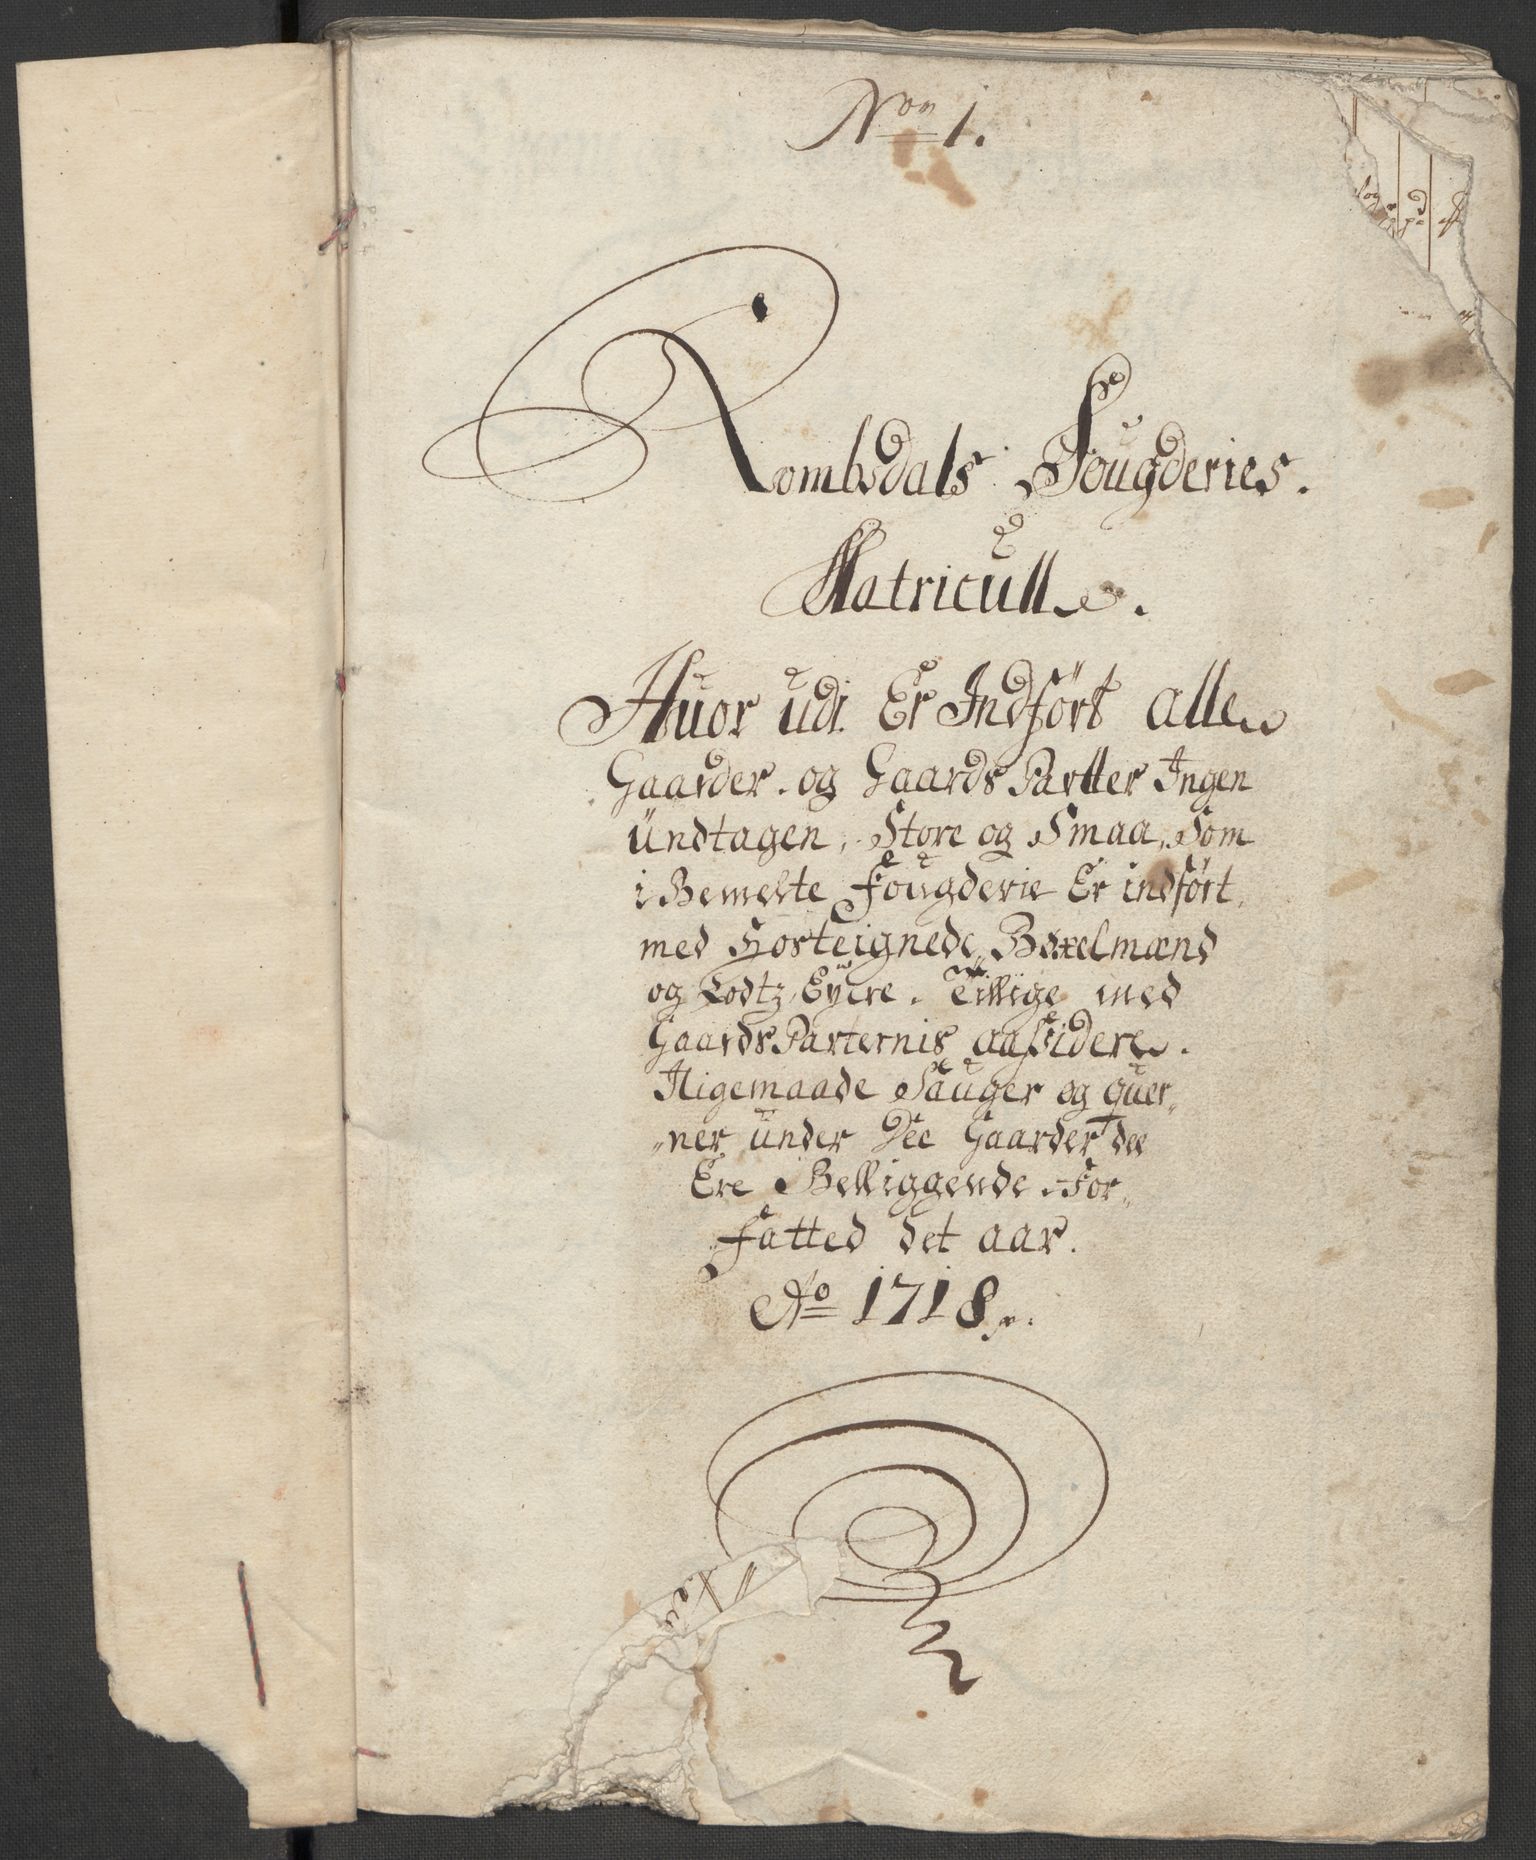 Non 1.
Rombsdals Fougderies.
Matricull.
Huor udi Er Indført alle
Gaarder og Gaards Partter Ingen
Undtagen, Store og Smaa, Som
i Bemelte Fougderie Er indført,
med Hosteignede Böxelmænd
og Lodtz Eyere. Tillige med
Gaards Parternis aassidere.
Iligemaade Sauger og Quer„
„ner under Dee Gaarder dee
Ere Belliggende. For„
Fatted det aar.
Ao 1718